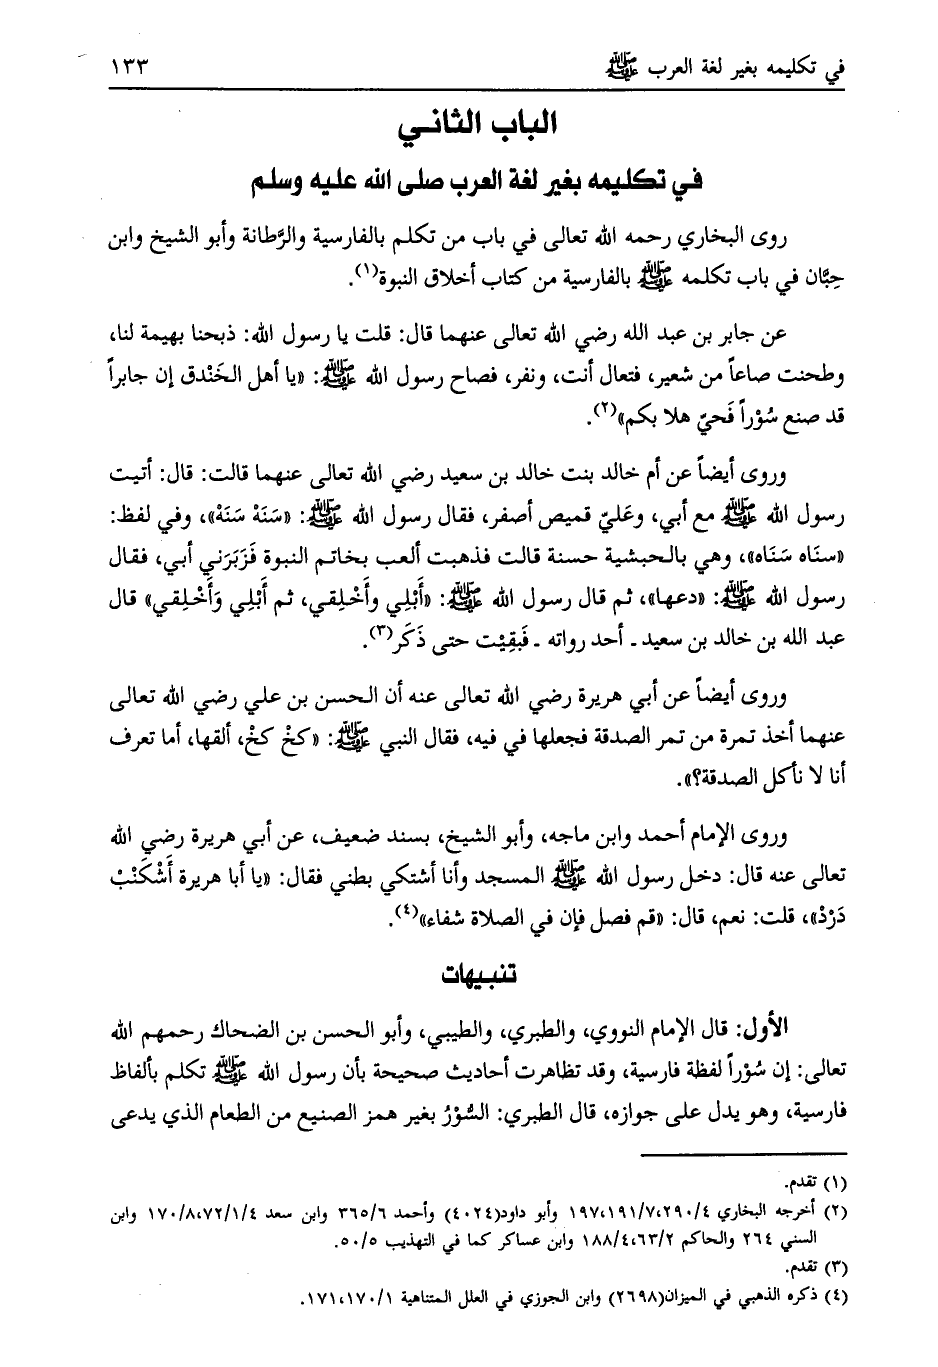 في تكليمه بغير لغة العرب ﷺ ١٣٣
الباب الثاني
في تكليمه بغير لغة العرب صلى الله عليه وسلم
روى البخاري رحمه الله تعالى في باب من تكلم بالفارسية والرَّطانة وأبو الشيخ وابن
حِبَّان في باب تكلمه ﷺ بالفارسية من كتاب أخلاق النبوة(١).
عن جابر بن عبد الله رضي الله تعالى عنهما قال: قلت يا رسول الله: ذبحنا بهيمة لنا،
وطحنت صاعاً من شعير، فتعال أنت، ونفر، فصاح رسول الله ﷺ: «يا أهل الخَنْدق إن جابراً
قد صنع سُوْراً فَحيّ هلا بكم»(٢).
وروى أيضاً عن أم خالد بنت خالد بن سعيد رضي الله تعالى عنهما قالت: قال: أتيت
رسول الله ﷺ مع أبي، وعَليّ قميص أصفر، فقال رسول الله ﷺ: «سَنَهْ سَنَهْ»، وفي لفظ:
«سنَاه سَنَاه»، وهي بالحبشية حسنة قالت فذهبت ألعب بخاتم النبوة فَزَبَرَني أبي، فقال
رسول الله ﷺ: «دعها»، ثم قال رسول الله ﷺ: «أَبْلِي وأَخْلِقي، ثم أَبْلِي وَأَخْلِقي» قال
عبد الله بن خالد بن سعيد ـ أحد رواته ـ فَبقِيْت حتى ذَكَر(٣).
وروى أيضاً عن أبي هريرة رضي الله تعالى عنه أن الحسن بن علي رضي الله تعالى
عنهما أخذ تمرة من تمر الصدقة فجعلها في فيه، فقال النبي ﷺ: «كخْ كخْ، ألقها، أما تعرف
أنا لا نأكل الصدقة؟».
وروى الإمام أحمد وابن ماجه، وأبو الشيخ، بسند ضعيف، عن أبي هريرة رضي الله
تعالى عنه قال: دخل رسول الله ﷺ المسجد وأنا أشتكي بطني فقال: «يا أبا هريرة أَشْكَنْبْ
دَرْدْ»، قلت: نعم، قال: «قم فصل فإن في الصلاة شفاء»(٤).
تنبيهات
الأول: قال الإمام النووي، والطبري، والطيبي، وأبو الحسن بن الضحاك رحمهم الله
تعالى: إن سُوْراً لفظة فارسية، وقد تظاهرت أحاديث صحيحة بأن رسول الله ﷺ تكلم بألفاظ
فارسية، وهو يدل على جوازه، قال الطبري: السُّوْرُ بغير همز الصنيع من الطعام الذي يدعى
(١) تقدم.
(٢) أخرجه البخاري ٤/٢٩٠، ٧/١٩١، ١٩٧ وأبو داود(٤٠٢٤) وأحمد ٦/٣٦٥ وابن سعد ٤/١/٧٢، ٨/١٧٠ وابن
السني ٢٦٤ والحاكم ٢/٦٣، ٤/١٨٨ وابن عساكر كما في التهذيب ٥/٥٠.
(٣) تقدم.
(٤) ذكره الذهبي في الميزان(٢٦٩٨) وابن الجوزي في العلل المتناهية ١/١٧٠، ١٧١.